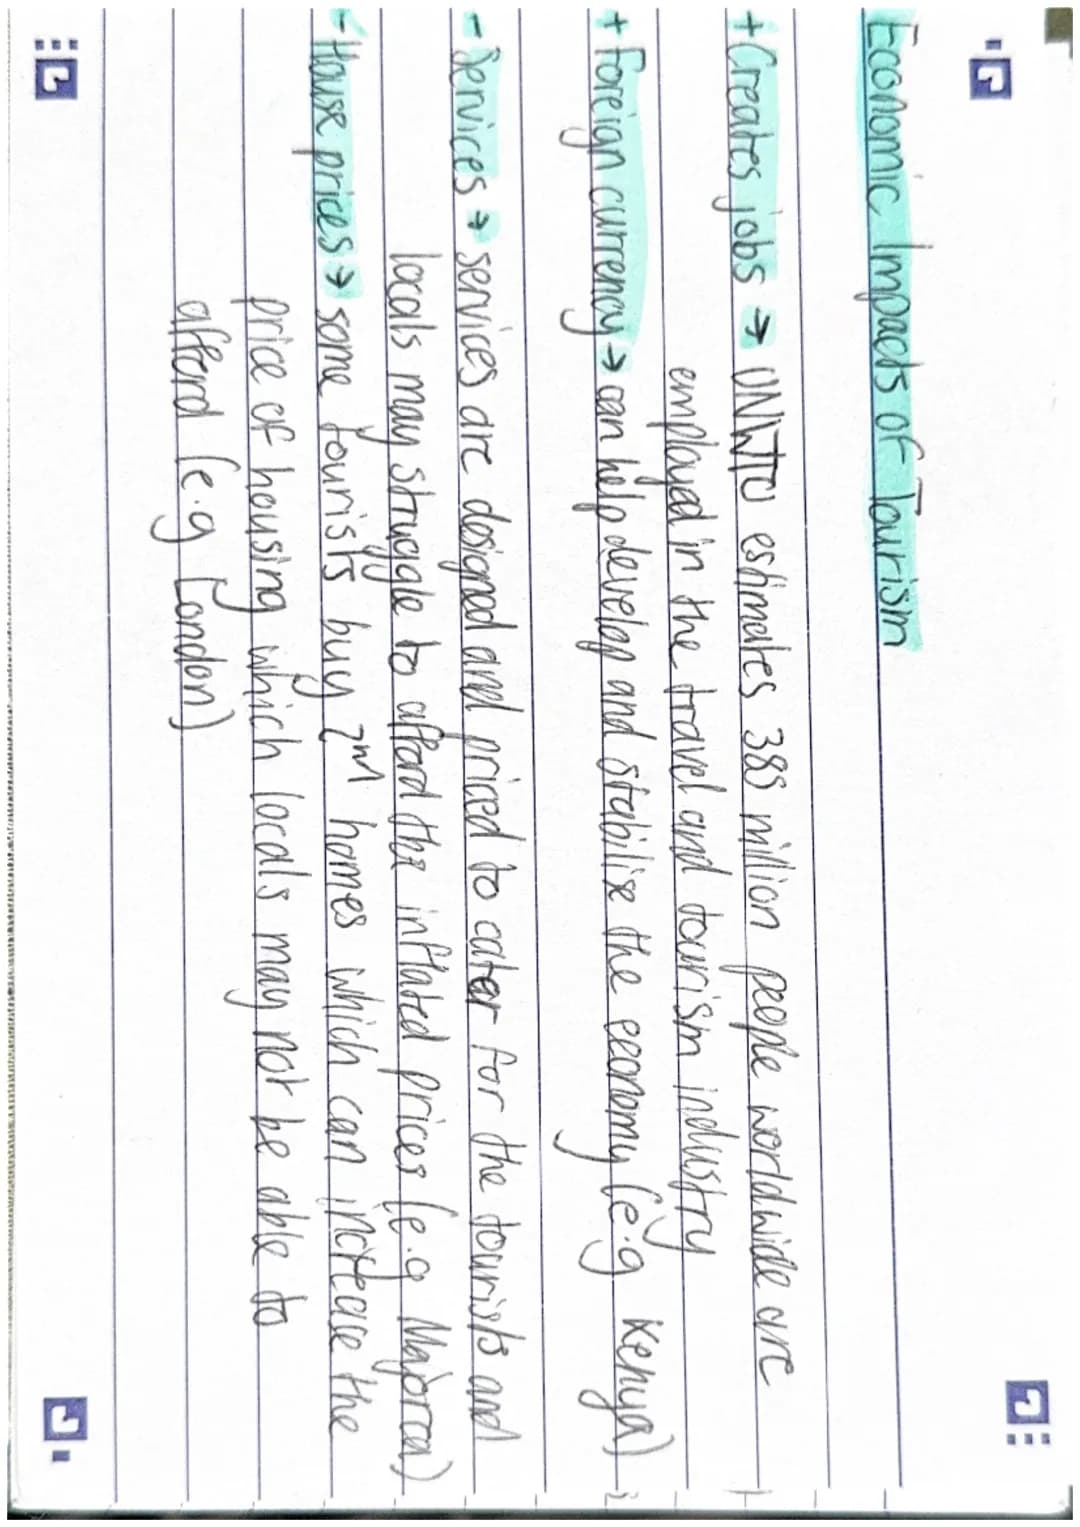 Economic Impacts of Tourism
+ Creates jobs → UNWTO estimates 385 million people worldwide are
employed in the travel and tourism industry
+ Foreign currency → can help develop and stabilise the economy (e.g Kenya)
- Services → services are designed and priced to cater for the tourists and
locals may struggle to afford the inflated prices (e.g Majorca)
- House prices → some tourists buy 2nd homes which can increase the
price of housing which locals may not be able to
afford (e.g London)